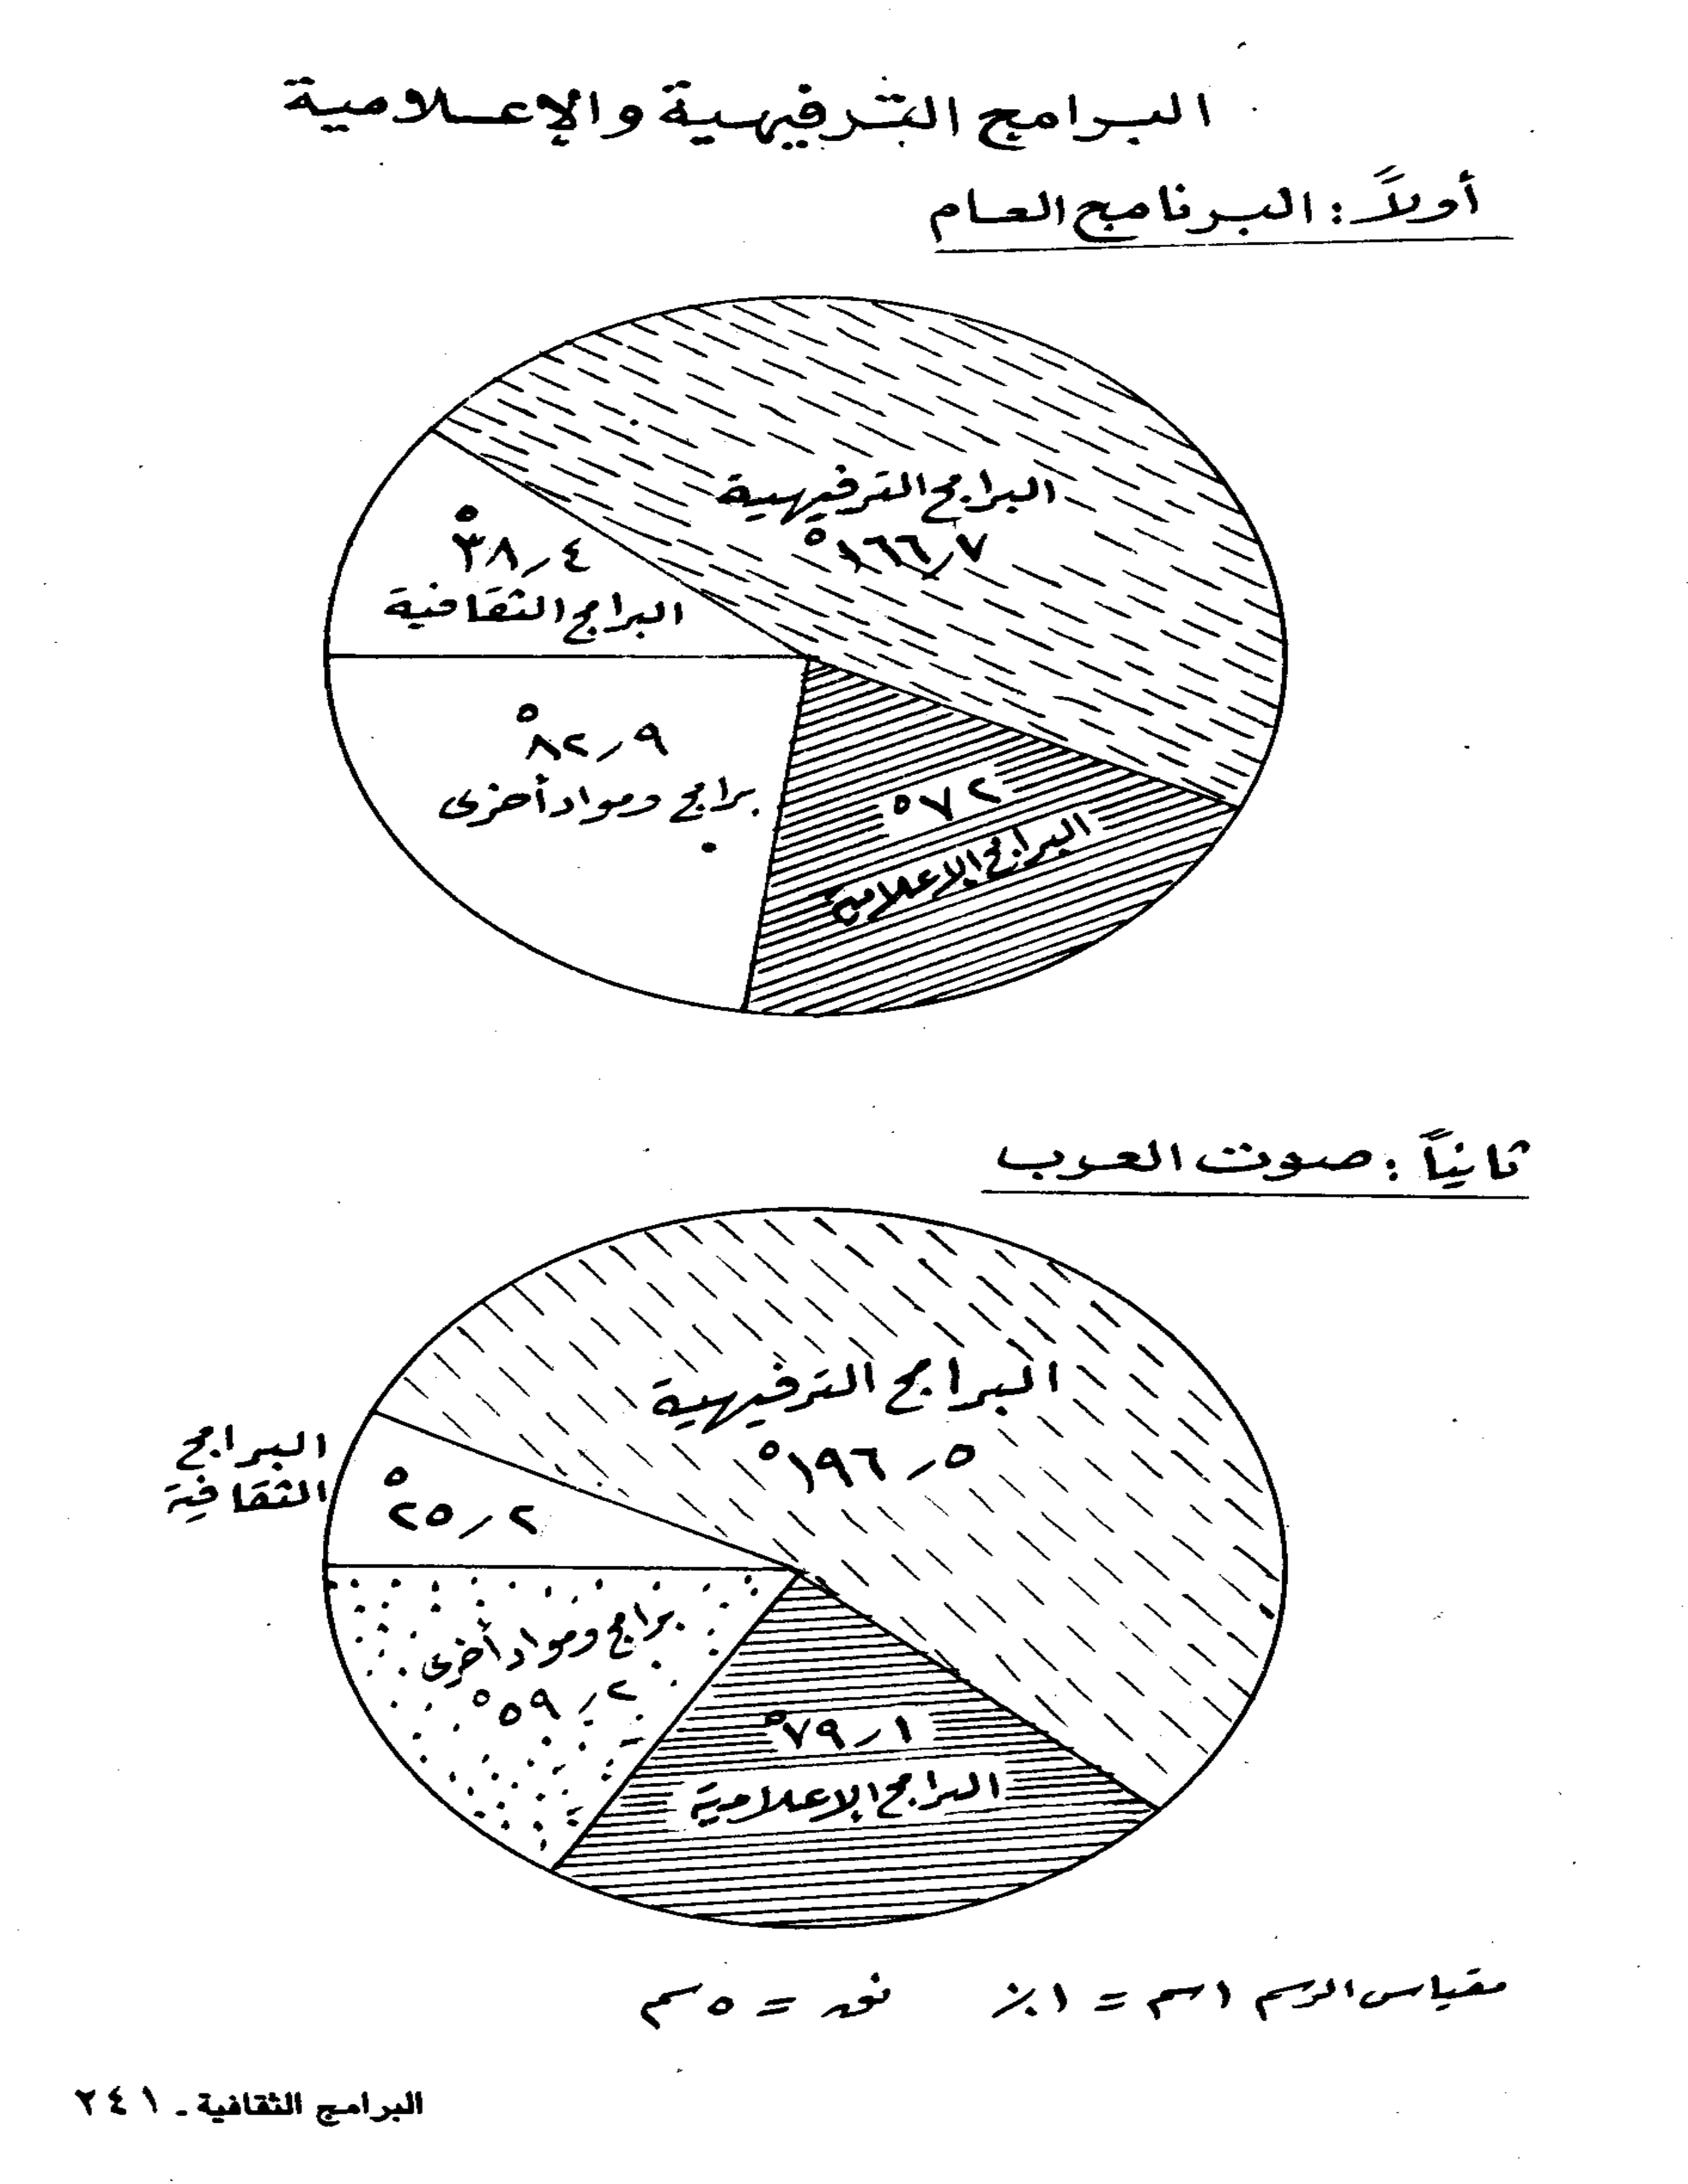 البرامج الترفيهية والإعلامية
أولاً : البرنامج العام
البرامج الترفيهية
١٦٦٫٧°
٣٨٫٤°
البرامج الثقافية
٨٢٫٩°
برامج ومواد أخرى
٧٢°
البرامج الإعلامية
ثانياً : صوت العرب
البرامج الترفيهية
١٩٦٫٥°
البرامج
الثقافية
٢٥٫٢°
برامج ومواد أخرى
٥٩٫٢°
٧٩٫١°
البرامج الإعلامية
مقياس الرسم ١سم = ١٪ نق = ٥سم
البرامج الثقافية - ٢٤١